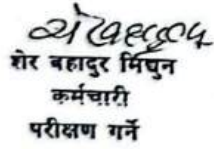 शेर बहादुर मिघुन
कर्मचारी
परीक्षण गर्ने